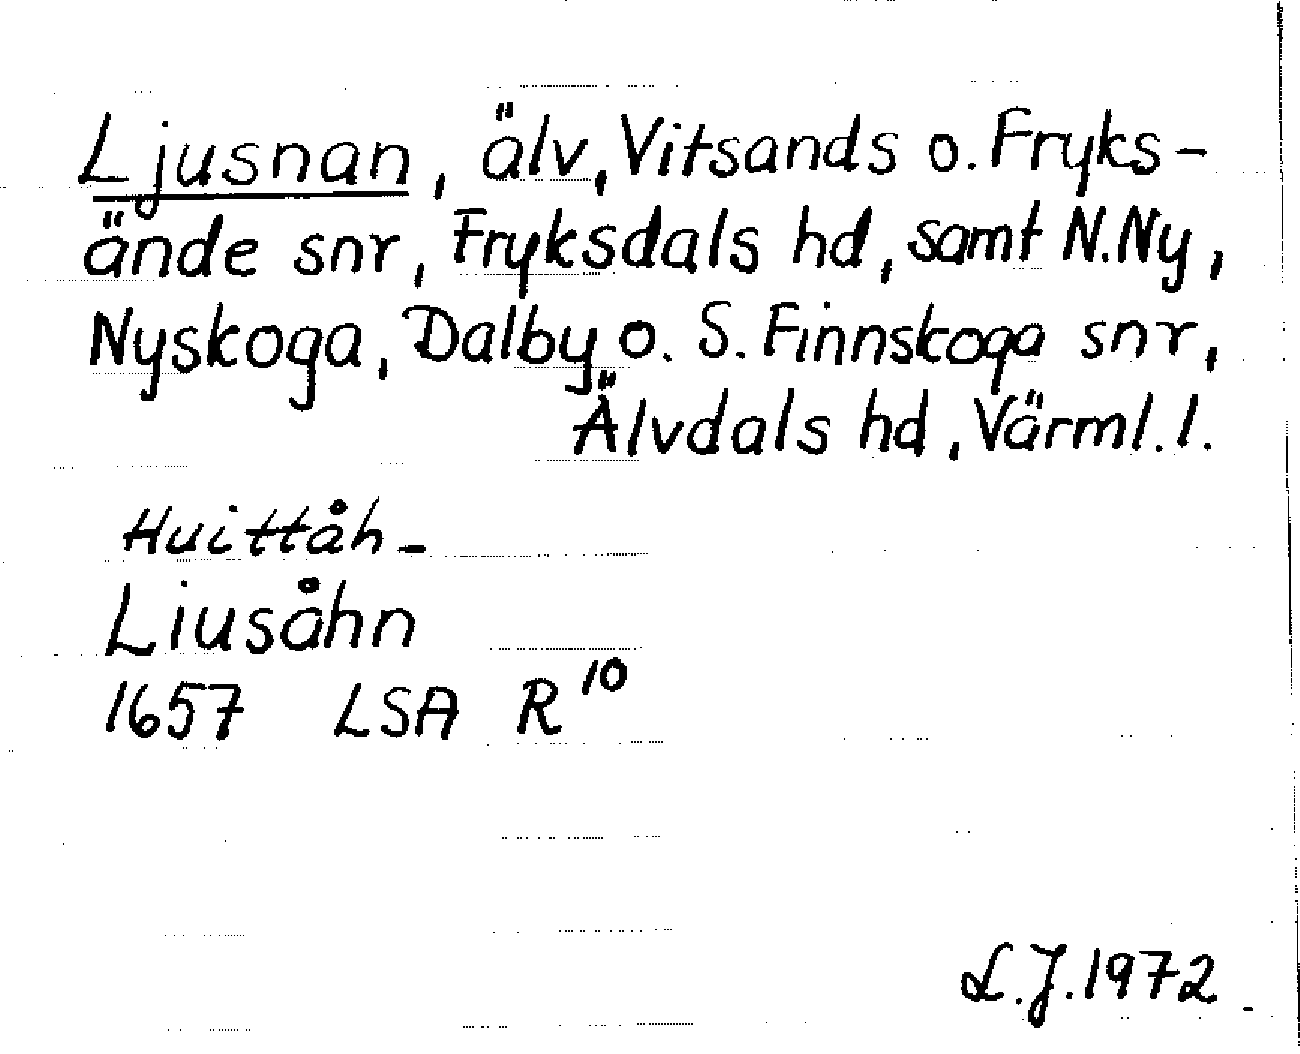 Ljusnan, älv, Vitsands o. Fryks-
ände snr, Fryksdals hd, samt N.Ny,
Nyskoga, Dalby o. S. Finnskoga snr,
Älvdals hd, Värml. l.
Huittåh-
Liusåhn
1657 LSA R 10
L.J. 1972